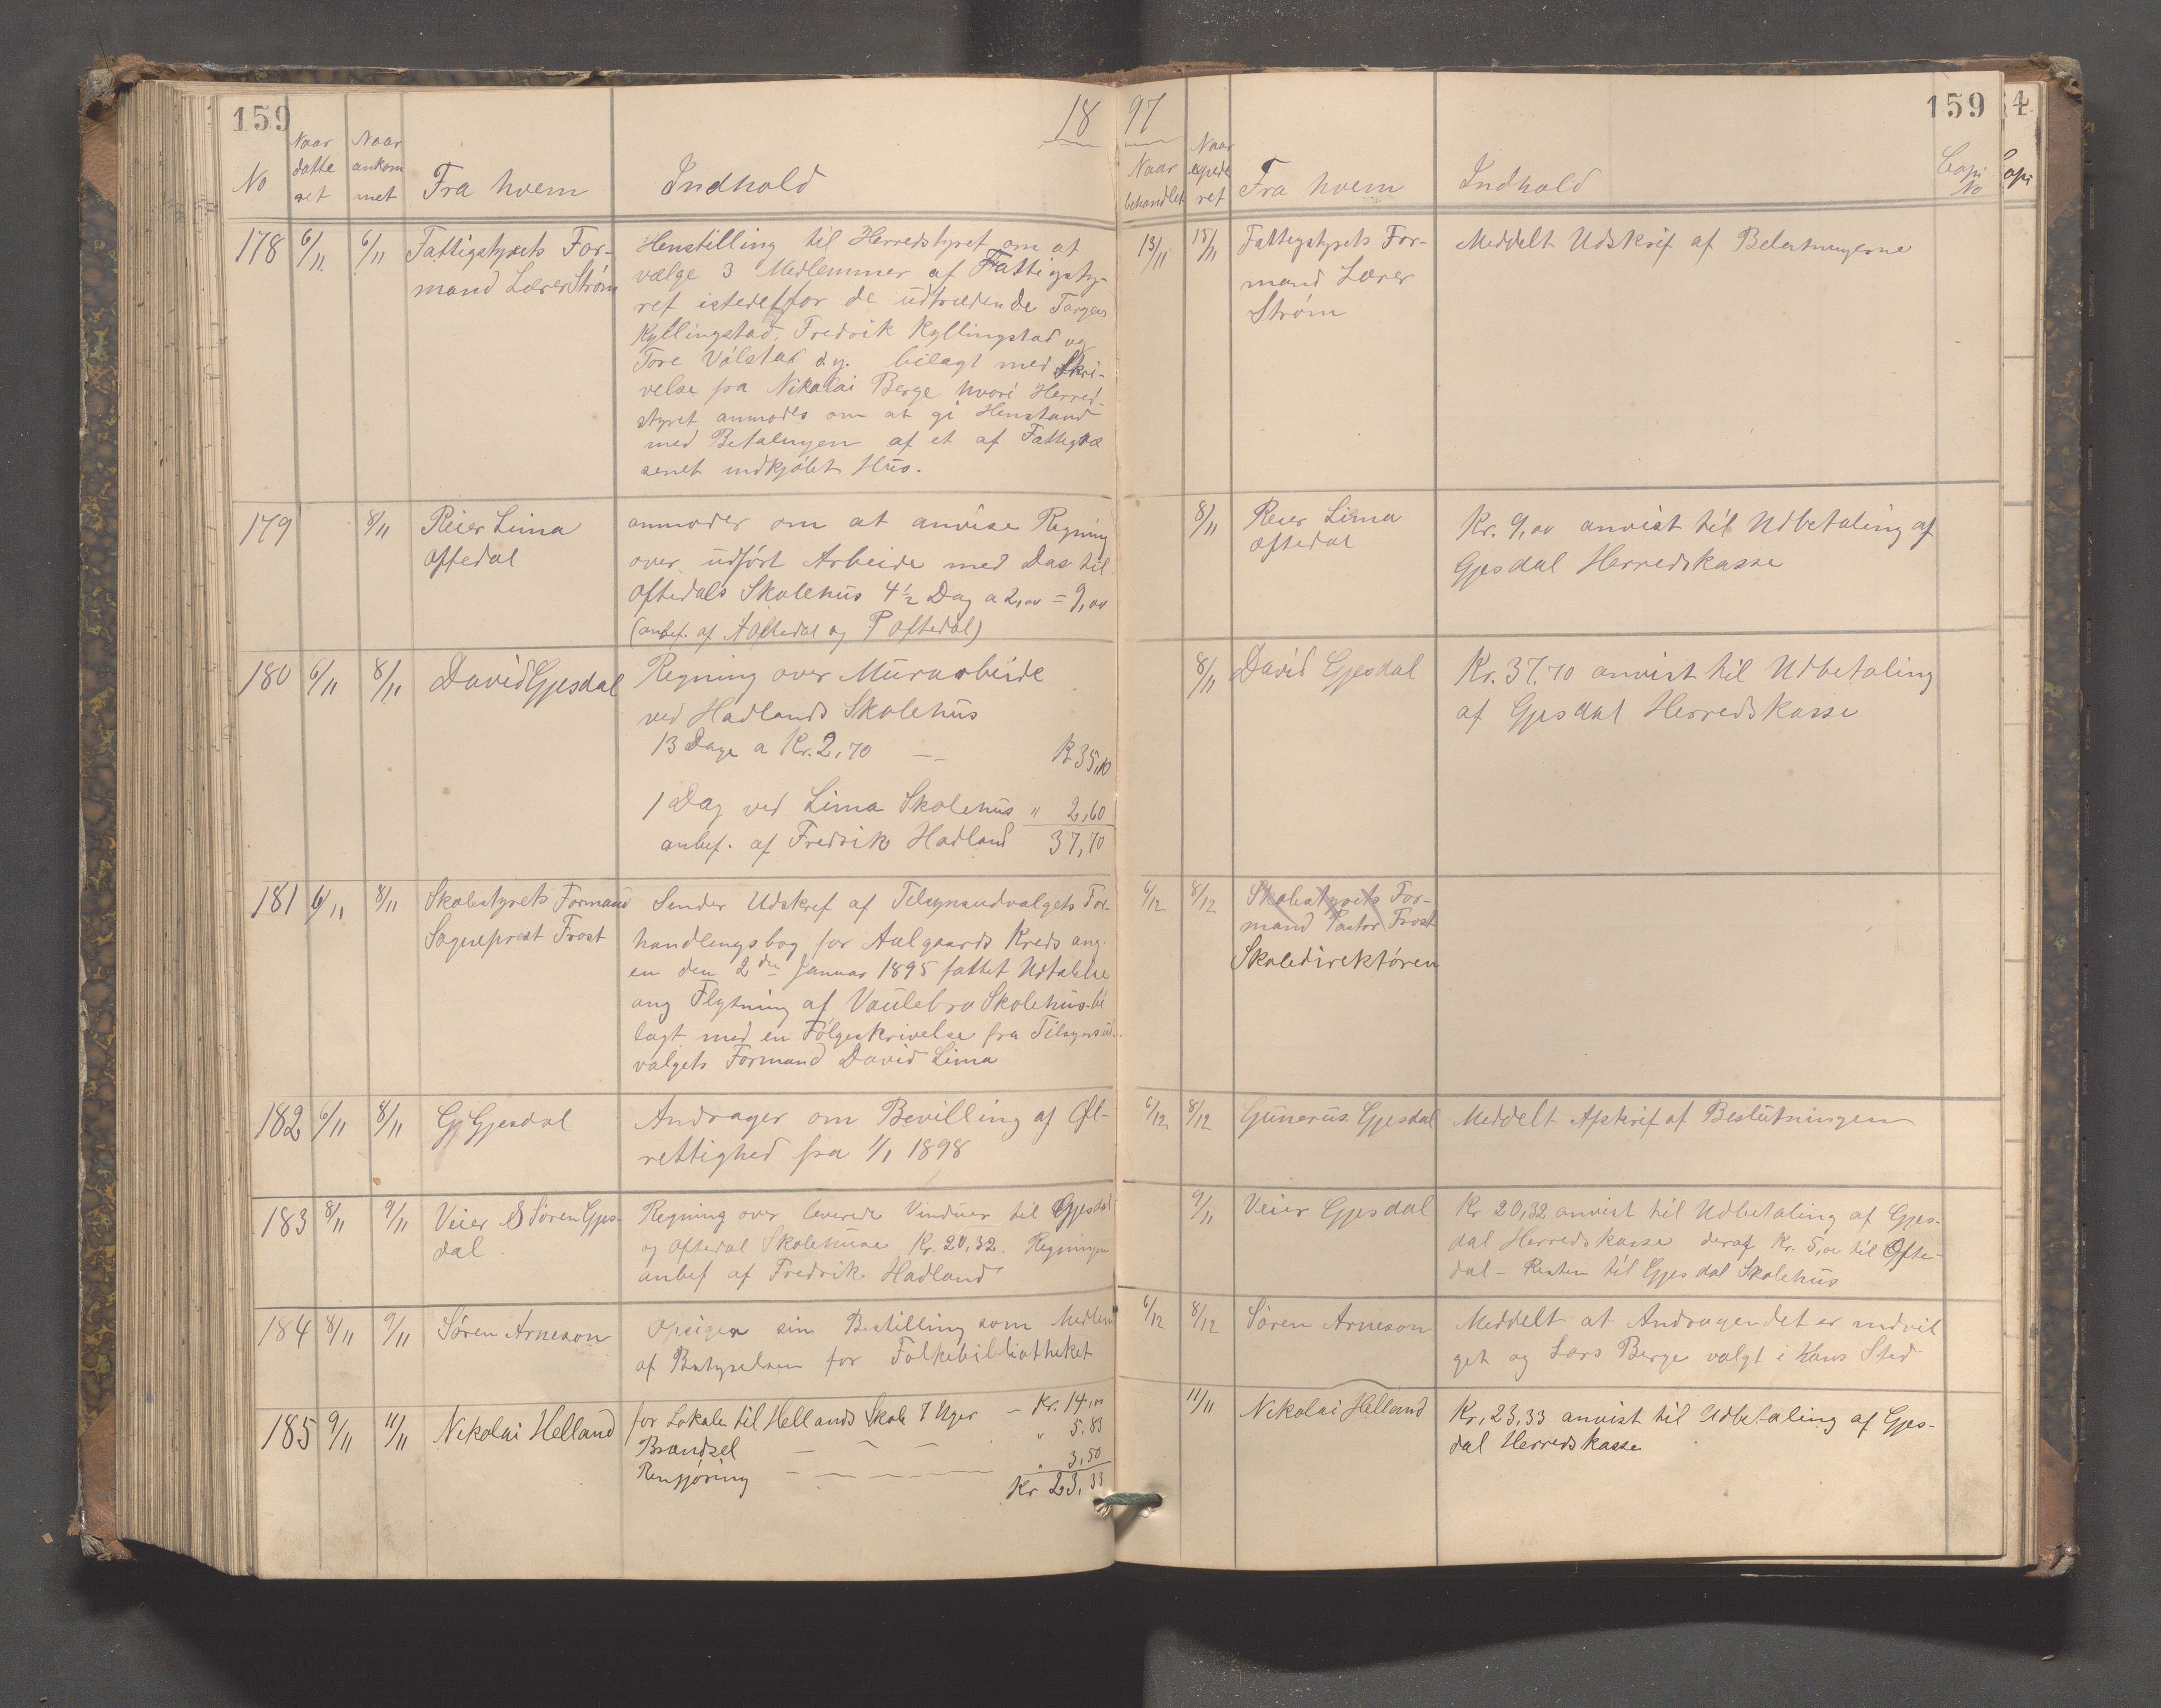 159
18
No
Naar datte ret
Naar ankom met
Fra hvem
Indhold
178 6/11 6/11
Fattigstyrets For-
mand Lærer Strøm
Henstilling til Herredstyret om at
vælge 3 Medlemmer af Fattigsty-
ret istedetfor de udtrædende Torger
Kyllingstad, Fredrik Kyllingstad og
Tore Válstad d.y. bilagt med Skri-
velse fra Nikolai Berge hvori Herred-
styret anmodes om at gi Henstand
med Betalingen af et af Fattigvæ
senet indkjøbt Hus.
179 8/11
Reier Lima
Oftedal
anmoder om at anvise Regning
over udført Arbeide med Das til
Oftedals Skolehus 4 1/2 Dag a 2,00 = 9,00
(anbef. af A Oftedal og P Oftedal)
180 6/11 8/11
David Gjesdal
Regning over Murarbeide
ved Hadlands Skolehus
13 Dage a Kr. 2,70 — K 35,10
1 Dag ved Lima Skolehus " 2,60
anbef. af Fredrik Hadland 37,70
181 6/11 8/11
Skolestyrets Formand
Sogneprest Frost
Sender Udskrif af Tilsynsudvalgets For-
handlingsbog for Aalgaards Kreds ang.
en den 2den Januar 1895 fattet Udtalelse
ang Flytning af Vaulebro Skolehus bi
lagt med en Følgeskrivelse fra Tilsynsud-
valgets Formand David Lima
182 6/11 8/11
Gj Gjesdal
Andrager om Bevilling af Øl-
rettighed fra 1/1 1898
183 8/11 9/11
Veier S Søren Gjes-
dal
Regning over leverede Vinduer til Gjesdal
og Oftedal Skolehuse Kr. 20,32. Regningen
anbef af Fredrik Hadland
184 8/11 9/11
Søren Arneson
Opsiger sin Bestilling som Medlem
af Bestyrelsen for Folkebibliotheket
185 9/11 11/11
Nikolai Helland
for Lokale til Hellands Skole 7 Uger — Kr. 14,00
Brændsel — — — " 5.83
Rengjøring — — — — " 3,50
Kr 23,33
97
159
Naar behandlet
Naar expede ret
Fra hvem
Indhold
Copi No
4
Copi
13/11 15/11
Fattigstyrets For-
mand Lærer
Strøm
Meddelt Udskrif af Beslutningerne
8/11
Reier Lima
Oftedal
Kr. 9,00 anvist til Udbetaling af
Gjesdal Herredskasse
8/11
David Gjesdal
Kr. 37,70 anvist til Udbetaling
af Gjesdal Herredskasse
6/12 8/12
Skolestyrets For-
mand Pastor Frost
Skoledirektøren
6/12 8/12
Gunerius Gjesdal
Meddelt Afskrif af Beslutningen
9/11
Veier Gjesdal
Kr 20,32 anvist til Udbetaling af Gjes-
dal Herredskasse deraf Kr. 5,00 til Ofte-
dal - Resten til Gjesdal Skolehus
6/12 8/12
Søren Arneson
Meddelt at Andragendet er indvil
get og Lars Berge valgt i hans Sted
11/11
Nikolai Helland
Kr, 23,33 anvist til Udbetaling af Gjes-
dal Herredskasse